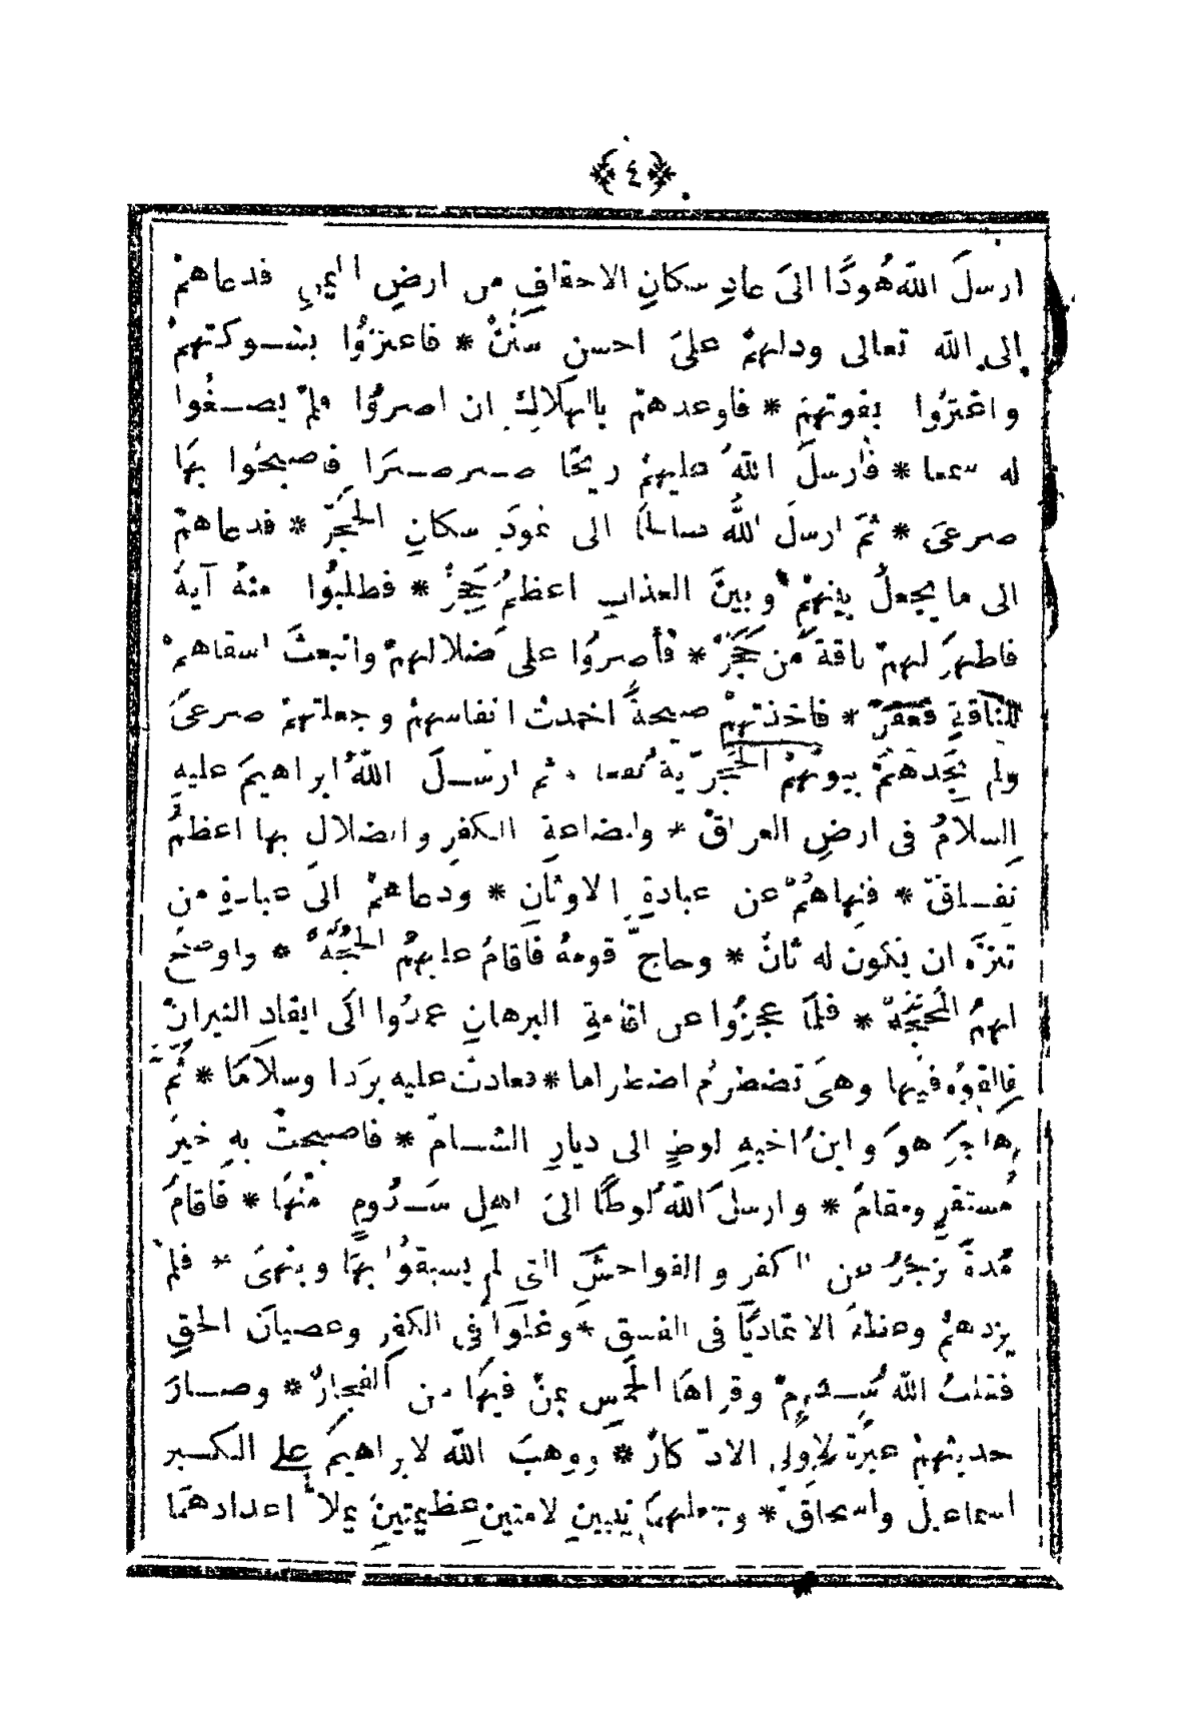 ﴿ ٤ ﴾
ارسلَ اللهُ هُودًا الىَ عادِ سكانِ الاحقافِ من ارضِ اليمنِ فدعاهمْ
إلى اللهِ تعالى ودلهمْ علىَ احسنِ سَنَنْ * فاعتزُّوا بشـوكتهمْ
واغترُّوا بقوتهمْ * فاوعدهمْ بالهلاكِ ان اصروُّا ولمْ يصـغُوا
له سمعا * فأرسلَ اللهُ عليهمْ ريحًا صـرصـرَا فاصبحُوا بهَا
صرعىَ * ثمَّ ارسلَ اللهُ صالحًا الى ثمودَ سكانِ الحِجَرْ * فدعاهمْ
الى ما يجعلُ بينهمْ وبينَ العذابِ اعظمُ حَجِزْ * فطلبُوا منهُ آيةً
فاظهرَ لهمْ ناقةً من حَجَرْ * فأصروُا على ضَلالهمْ وانبعثَ اشقاهمْ
للناقةِ فعَقَرْ * فاخذتهمْ صيحةٌ اخمدتْ انفاسهمْ وجعلتهمْ صرعىَ
ولم تجَدهمْ بيوتهمُ الحَجَرِيةُ نفعا * ثم ارسـلَ اللهُ ابراهيمَ عليهِ
السلامُ فى ارضِ العراقْ * ولبضاعةِ الكفرِ والضلالِ بها اعظمُ
نَفَـاقْ * فنهاهُمْ عن عبادةِ الاوثانِ * ودعاهمْ الىَ عبادةِ من
تنزَّهَ ان يكون له ثانْ * وحاجَّ قومهُ فاقامُ عليهمُ الحُجَّهْ * واوضحَ
لهمُ المحجَّهْ * فلمَّا عجزُوا عن اقامةِ البرهانِ عمدُوا الَى ايقادِ النيرانْ
فالقوُهُ فيها وهىَ تضطرمُ اضطراما * فعادتْ عليه برَدا وسلامًا * ثمَّ
هاجرَ هوَ وابنُ اخيهِ لوطٍ الى ديارِ الشـامْ * فاصبحتْ بهِ خيرَ
مُستقرٍ ومقامْ * وارسلَ اللهُ لُوطًا الىَ اهلِ سَـدُومٍ مْنهَا * فاقامَ
مُدةً يزجرُ عن الكفرِ والفواحشَ التى لم يسبقوُا بهَا وينهىَ * فلمْ
يزدهمْ وعظهُ الا تماديًا فى الفسقِ * وغلوًا فى الكفرِ وعصيانِ الحقِ
فقلبَ اللهُ سُـدُومْ وقراهَا الخمَسِ بمنْ فيهَا من الفجارْ * وصـارَ
حديثهمْ عبرَةً لاِولى الادّكارْ * ووهبَ اللهُ لابراهيمَ على الكـبر
اسماعيلَ واسحاقَ * وجعلهمَا نبيينِ لامتينِ عظيمتينِ يملا ُ اعدادهمَا